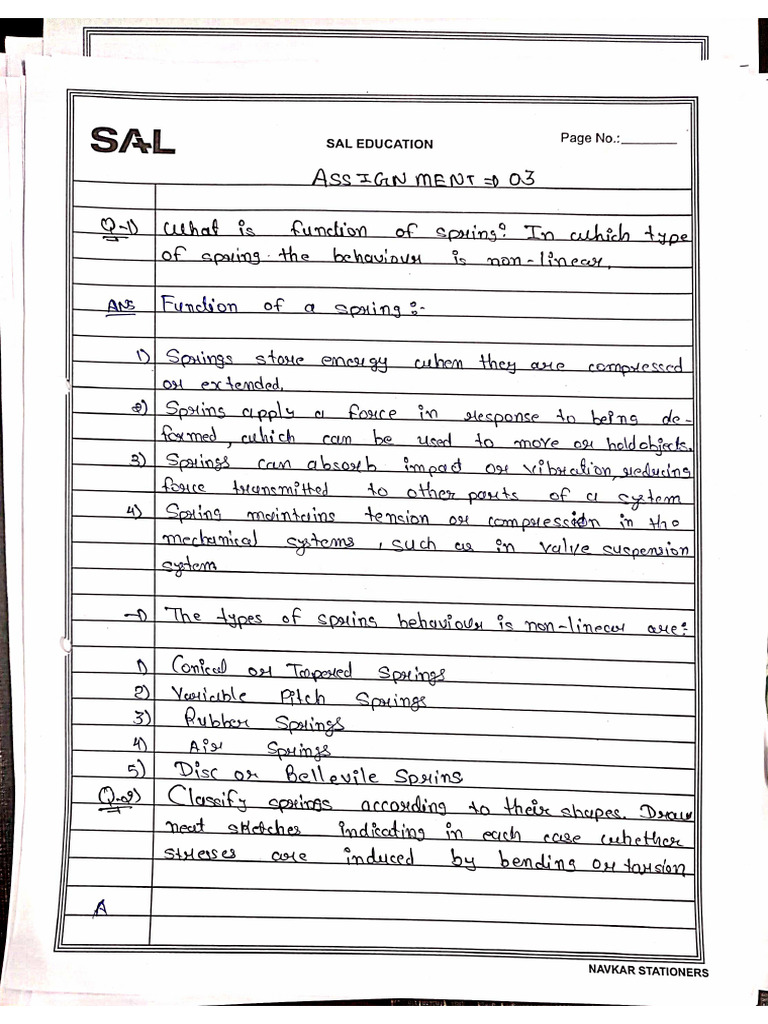 SAL
SAL EDUCATION
Page No.:________
ASSIGNMENT ⇒ 03
Q-1) What is function of spring? In which type
of spring the behaviour is non-linear.
ANS Function of a spring:-
1) Springs store energy when they are compressed
or extended.
2) Sprins apply a force in response to being de-
formed, which can be used to move or hold objects.
3) Springs can absorb impact or vibration, reducing
force transmitted to other parts of a system
4) Spring maintains tension or compression in the
mechanical systems, such as in valve suspension
system
→ The types of sprins behaviour is non-linear are:
1) Conical or Tapered Springs
2) Variable Pitch Springs
3) Rubber Springs
4) Air Springs
5) Disc or Bellevile Sprins
Q-2) Classify springs according to their shapes. Draw
neat sketches indicating in each case whether
stresses are induced by bending or tarsion
A
NAVKAR STATIONERS